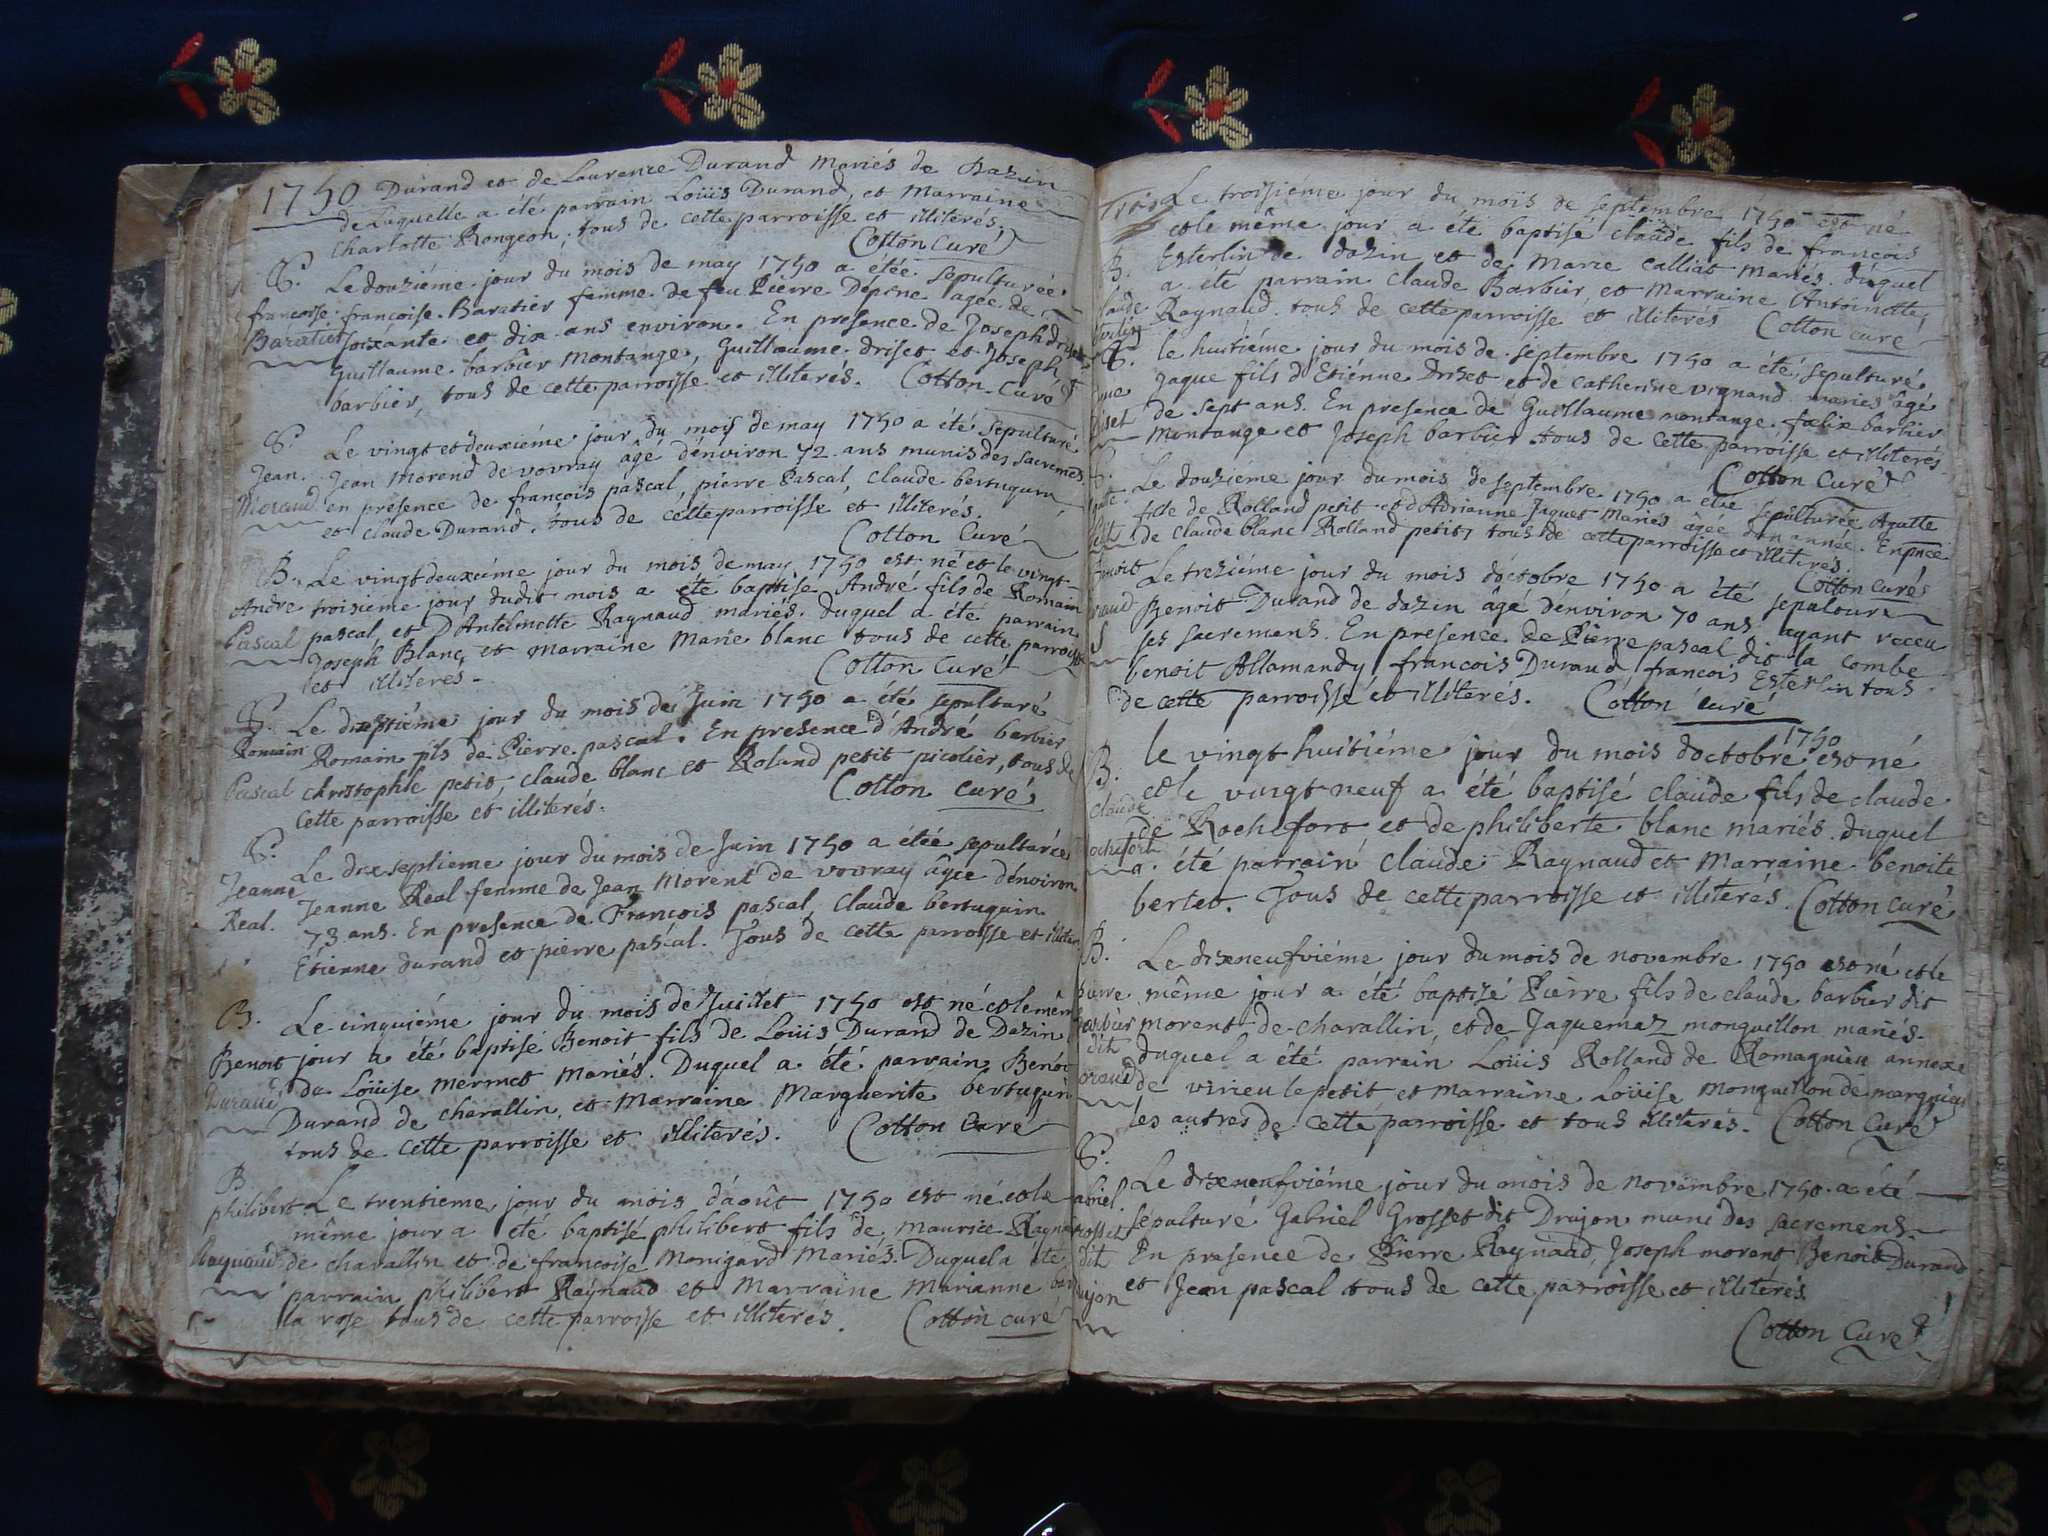 1750 Durand et de Laurence Durand mariés de Dazin
de Laquelle a été parrain Loüis Durand, et Marraine
Charlotte Rongeon, tous de cette parroisse et illiterés,
Cotton Curé
S. Le douziéme jour du mois de may 1750 a étée sepulturée
francoise francoise Baratier femme de feu Pierre Depine agee de
Baratier soixante et dix ans environ. En presence de Joseph driset
Guillaume barbier montange, Guillaume driset et Joseph
barbier, tous de cette parroisse et illiterés. Cotton Curé
S. Le vingt et deuxiéme jour du mois de may 1750 a été sepulturé
Jean Jean Morend de vovray âgé dénviron 72 ans munis des sacremes
Morand en présence de françois pascal, pierre Pascal, Claude bertuguin
et claude Durand, tous de cette parroisse et illiterés.
Cotton Curé
B. Le vingtdeuxiéme jour du mois de may 1750 est né et le vingt
Andre troisieme jour dudit mois a été baptise André fils de Romain
Pascal pascal et D'Antelmette Raynaud mariés. duquel a été parrain
Joseph Blanc, et marraine Marie blanc tous de cette parroisse
et illiteres. Cotton Curé
S. Le dixseptiéme jour du mois de Juin 1750 a été sepulturé
Romain Romain fils de Pierre pascal. En presence d'André barbier
Pascal christophle petit, claude blanc et Roland petit picolier, tous de
cette parroisse et illiterés. Cotton curé
S. Le dixseptieme jour du mois de Juin 1750 a étée sepulturée
Jeanne Jeanne Real femme de Jean Morent de vovray âgée dénviron
Real. 73 ans. En presence de François pascal, Claude bertuguin
Etienne durand et pierre pascal. Tous de cette parroisse et illiter
B. Le cinquiéme jour du mois de Juillet 1750 est né et le mêm
Benoit jour a été baptisé Benoit fils de Loüis Durand de Dazin
Durand de Loüise mermet Mariés. Duquel a été parrain Benoi
Durand de charallin, et Marraine Marguerite bertuguin
tous de cette parroisse et illiterés. Cotton Curé
B.
philibert Le trentieme jour du mois d'août 1750 est né et le
même jour a été baptisé philibert fils de maurice Rayna
Raynaud de charallin et de francoise Monigard Mariés. Duquel a été
parrain philibert Raynaud et Marraine Marianne bar
la rose tous de cette parroisse et illiterés. Cotton curé
Le troisiéme jour du mois de septembre 1750 est né
et le même jour a été baptisé claude fils de francois
B. Esterlin de dazin et de Marie Calliat Mariés. duquel
a été parrain Claude Barbier et Marraine Antoinette
Raynaud. tous de cette parroisse et illiterés Cotton curé
S. le huitiéme jour du mois de septembre 1750 a été sepulturé
Jaque fils d'Etiénne Driset et de catherine vignand mariés âgé
de sept ans. En presence de Guillaume montange. fœlix barbier
Montange et Joseph barbier tous de cette parroisse et illiterés
Cotton Curé
S. Le douziéme jour du mois de septembre 1750 a été sepulturée Agatte
fille de Rolland petit et d'Adrianne Jaquet Mariés âgée d'un année. En pnce
de claude blanc Rolland petit, tous de cette parroisse et illiterés.
Cotton Curé
Le treziéme jour du mois d'octobre 1750 a été sepultur
Benoit Durand de dazin âgé dénviron 70 ans ayant receu
ses sacremens. En presence de Pierre pascal dit la combe
benoit Allamandy, francois Durand, francois Esterlin tous
de cette parroisse et illiterés. Cotton curé
1750
B. le vingt huitiéme jour du mois d'octobre est né
et le vingt neuf a été baptisé claude fils de claude
de Rochefort et de philiberte blanc mariés. duquel
a été parrain claude Raynaud et Marraine benoite
bertet. Tous de cette parroisse et illiterés. Cotton curé
B. Le dixneufviéme jour du mois de novembre 1750 est né et le
même jour a été baptizé Pierre fils de claude barbier dit
morent de charallin, et de Jaquemaz monguillon mariés.
duquel a été parrain Loüis Rolland de Romagnieu annexe
de virieu le petit et marraine Loüise Monguillon de margnieu
les autres de cette parroisse et tous illiterés. Cotton Curé
S.
Le dixneufviéme jour du mois de novembre 1750. a été
sépulturé Gabriel Grosset dit Drujon muni des sacremens.
En presence de Pierre Raynaud, Joseph morent Benoit Durand
et Jean pascal tous de cette parroisse et illiterés
Cotton Curé